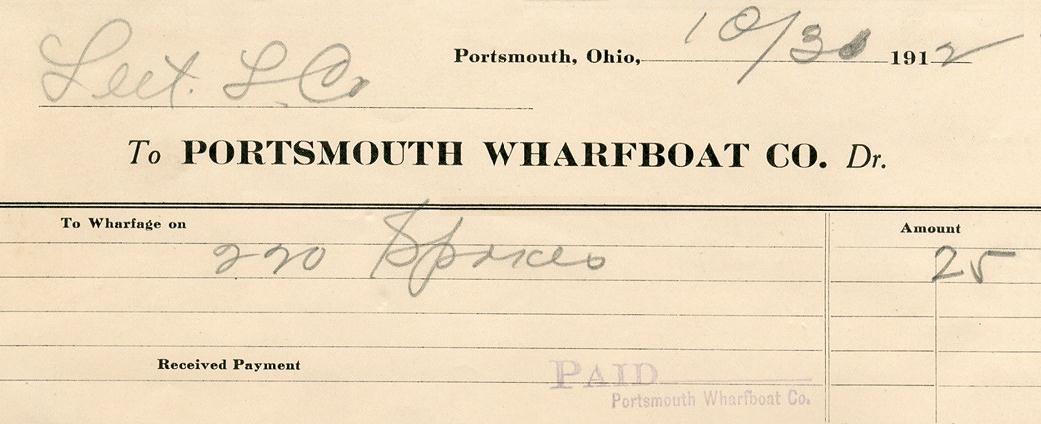 Portsmouth, Ohio, 10/30 1912
L. Co
To PORTSMOUTH WHARFBOAT CO. Dr.
To Wharfage on
Amount
220 Spokes 25
Received Payment
PAID
Portsmouth Wharfboat Co.